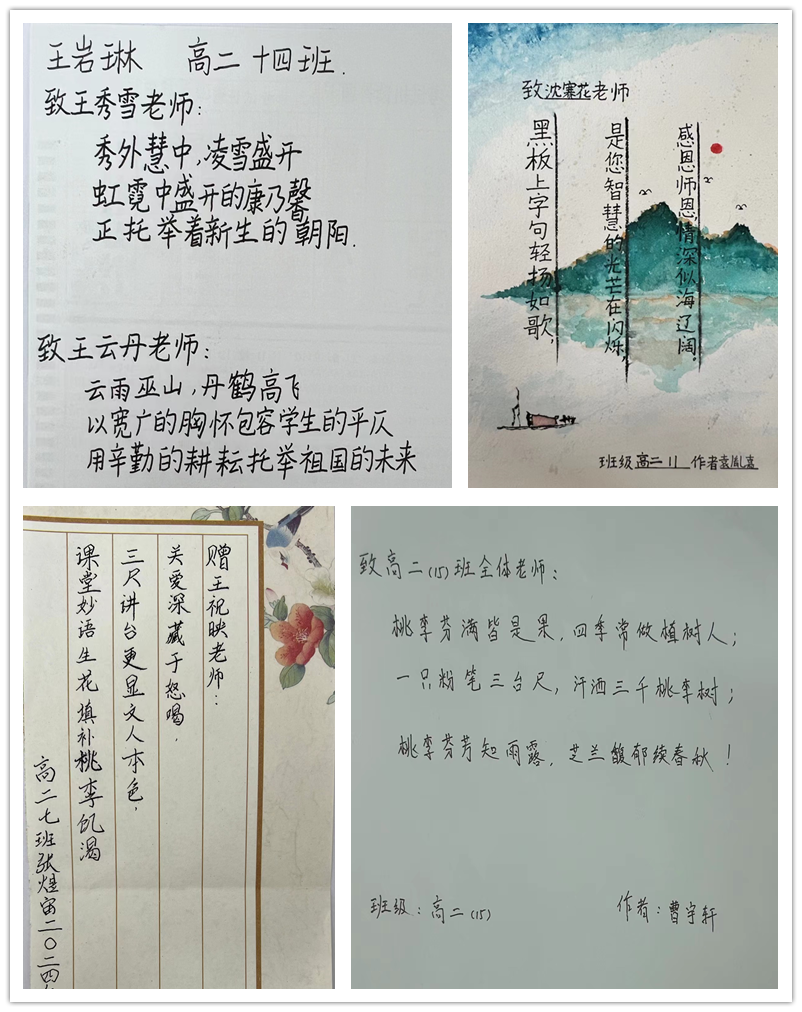 王岩琳 高二十四班.
致王秀雪老师:
秀外慧中,凌雪盛开
虹霓中盛开的康乃馨
正托举着新生的朝阳.
致王云丹老师:
云雨巫山,丹鹤高飞
以宽广的胸怀包容学生的平仄
用辛勤的耕耘托举祖国的未来
致沈寨花老师
黑板上字句轻扬如歌,
是您智慧的光芒在闪烁,
感恩师恩情深似海辽阔。
班级高二11 作者
赠王祝映老师:
关爱深藏于怒喝,
三尺讲台更显文人本色,
课堂妙语生花填补桃李饥渴
高二七班张煜宙二〇二四
致高二(15)班全体老师:
桃李芬满皆是果,四季常做植树人;
一只粉笔三台尺,汗洒三千桃李树;
桃李芬芳知雨露,芝兰馥郁续春秋!
班级:高二(15)
作者:曹宇轩